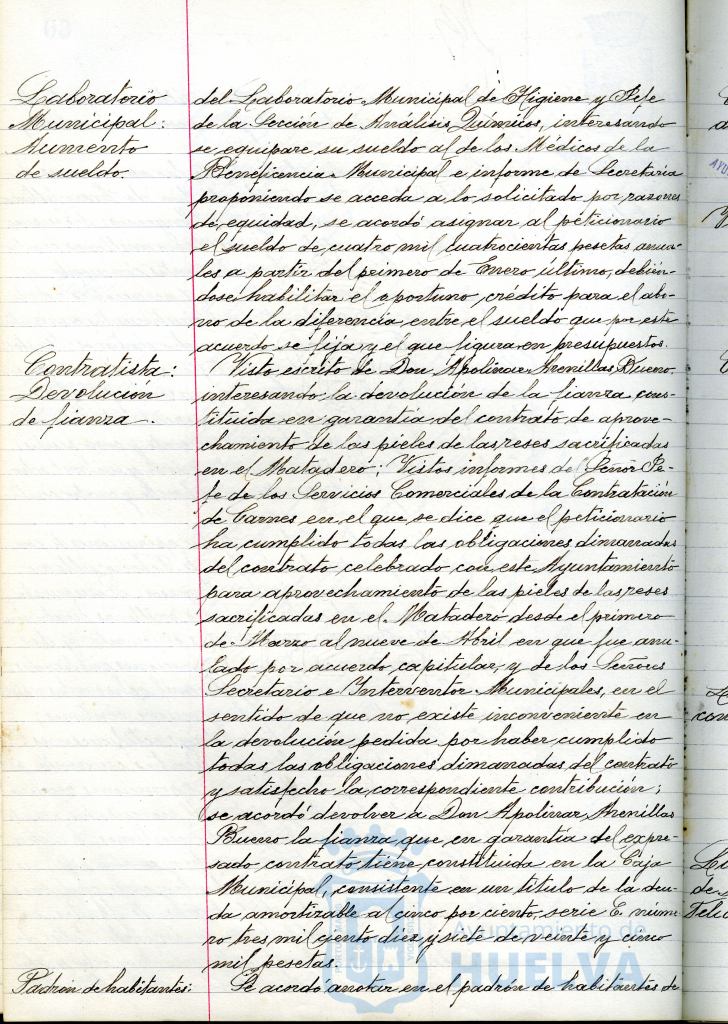 Laboratorio
Municipal:
Aumento
de sueldo.
del Laboratorio Municipal de Higiene y Jefe
de la Sección de Análisis Químicos, interesando
se equipare su sueldo al de los Médicos de la
Beneficencia Municipal e informe de Secretaría
proponiendo se acceda a lo solicitado por razones
de equidad, se acordó asignar al peticionario
el sueldo de cuatro mil cuatrocientas pesetas anua-
les a partir del primero de Enero último, debién-
dose habilitar el oportuno crédito para el abo-
no de la diferencia entre el sueldo que por este
acuerdo se fija y el que figura en presupuestos.
Contratista:
Devolución
de fianza.
Visto escrito de Don Apolinar Arenillas Bueno,
interesando la devolución de la fianza cons-
tituida en garantía del contrato de aprove-
chamiento de las pieles de las reses sacrificadas
en el Matadero; Vistos informes del Señor Je-
fe de los Servicios Comerciales de la Contratación
de Carnes en el que se dice que el peticionario
ha cumplido todas las obligaciones dimanadas
del contrato celebrado con este Ayuntamiento
para aprovechamiento de las pieles de las reses
sacrificadas en el Matadero desde el primero
de Marzo al nueve de Abril en que fue anu-
lado por acuerdo capitular, y de los Señores
Secretario e Interventor Municipales, en el
sentido de que no existe inconveniente en
la devolución pedida por haber cumplido
todas las obligaciones dimanadas del contrato
y satisfecho la correspondiente contribución;
se acordó devolver a Don Apolinar Arenillas
Bueno la fianza que en garantía del expre-
sado contrato tiene constituida en la Caja
Municipal, consistente en un título de la deu-
da amortizable al cinco por ciento, serie E. núme-
ro tres mil ciento diez y siete de veinte y cinco
mil pesetas.
Padrón de habitantes:
Se acordó anotar en el padrón de habitantes de
Ayuntamiento de
HUELVA